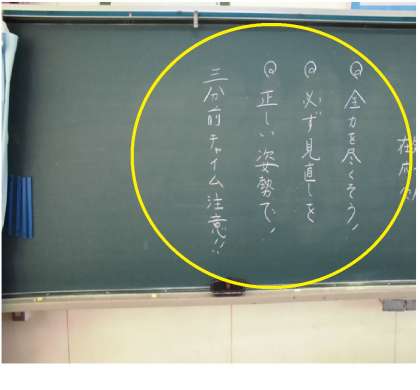 ◎ 全力を尽くそう!
◎ 必ず見直しを
◎ 正しい姿勢で!
三分前チャイム注意!!